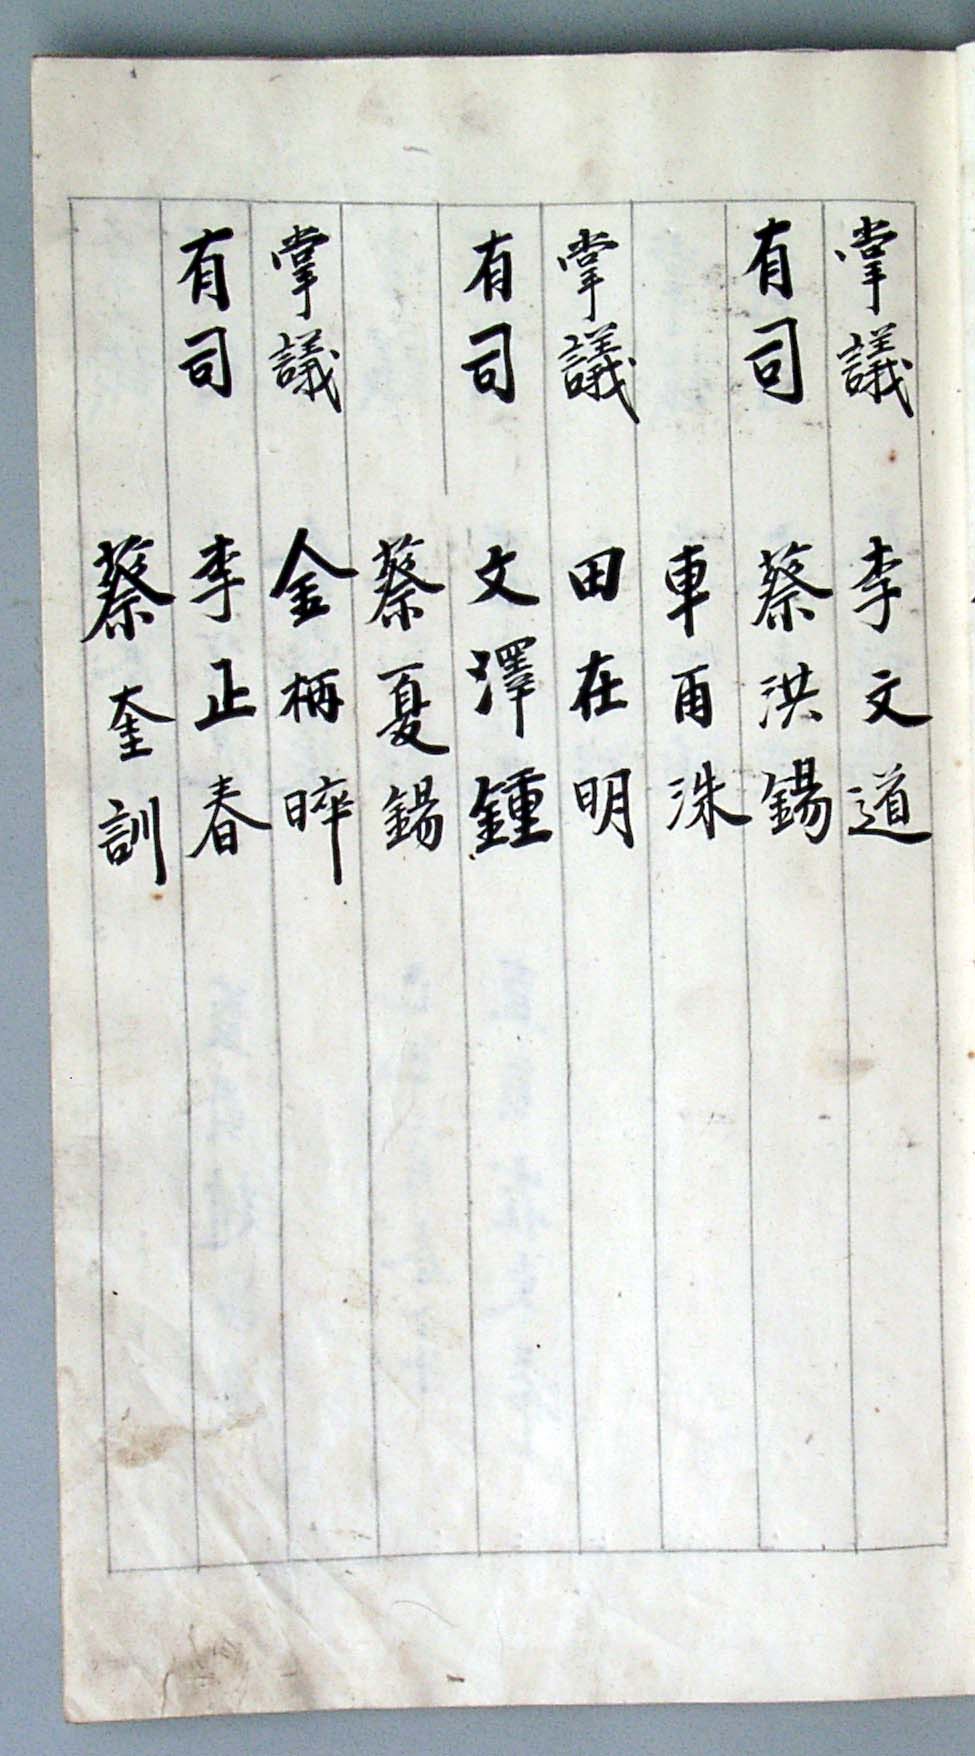 掌議 李文道
有司 蔡洪錫
車甬洙
掌議 田在明
有司 文澤鍾
蔡夏錫
掌議 金柄晬
有司 李正春
蔡奎訓